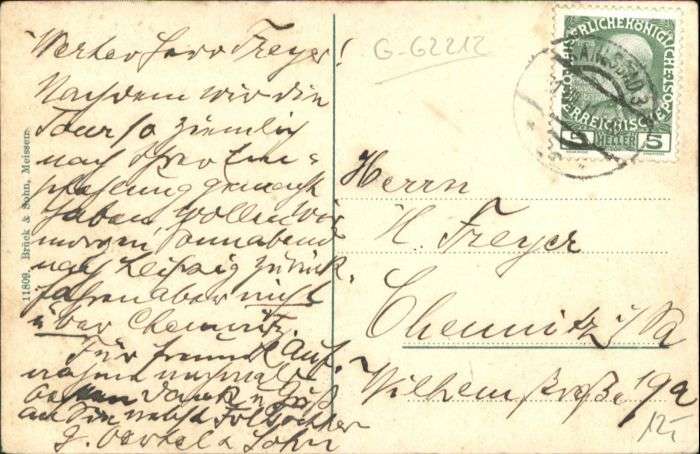 Werter Herr Freyer!
Nachdem wir die
Tour so ziemlich
nach Ihrer Em=
pfehlung gemacht
haben wollen wir
morgen, Sonnabend
nach Leipzig zurück
fahren aber nicht
über Chemnitz.
Für freundl. Auf-
nahme nochmals
besten Dank u. Gruß
an die
&
Sohn
G-G2212
11809. Brück & Sohn, Meissen.
KAISERLICHEKÖNIGLICHE
ÖSTERREICHISCHE POST
5 HELLER 5
Herrn
H. Freyer
Chemnitz i/Sa
Wilhelmstraße 19a